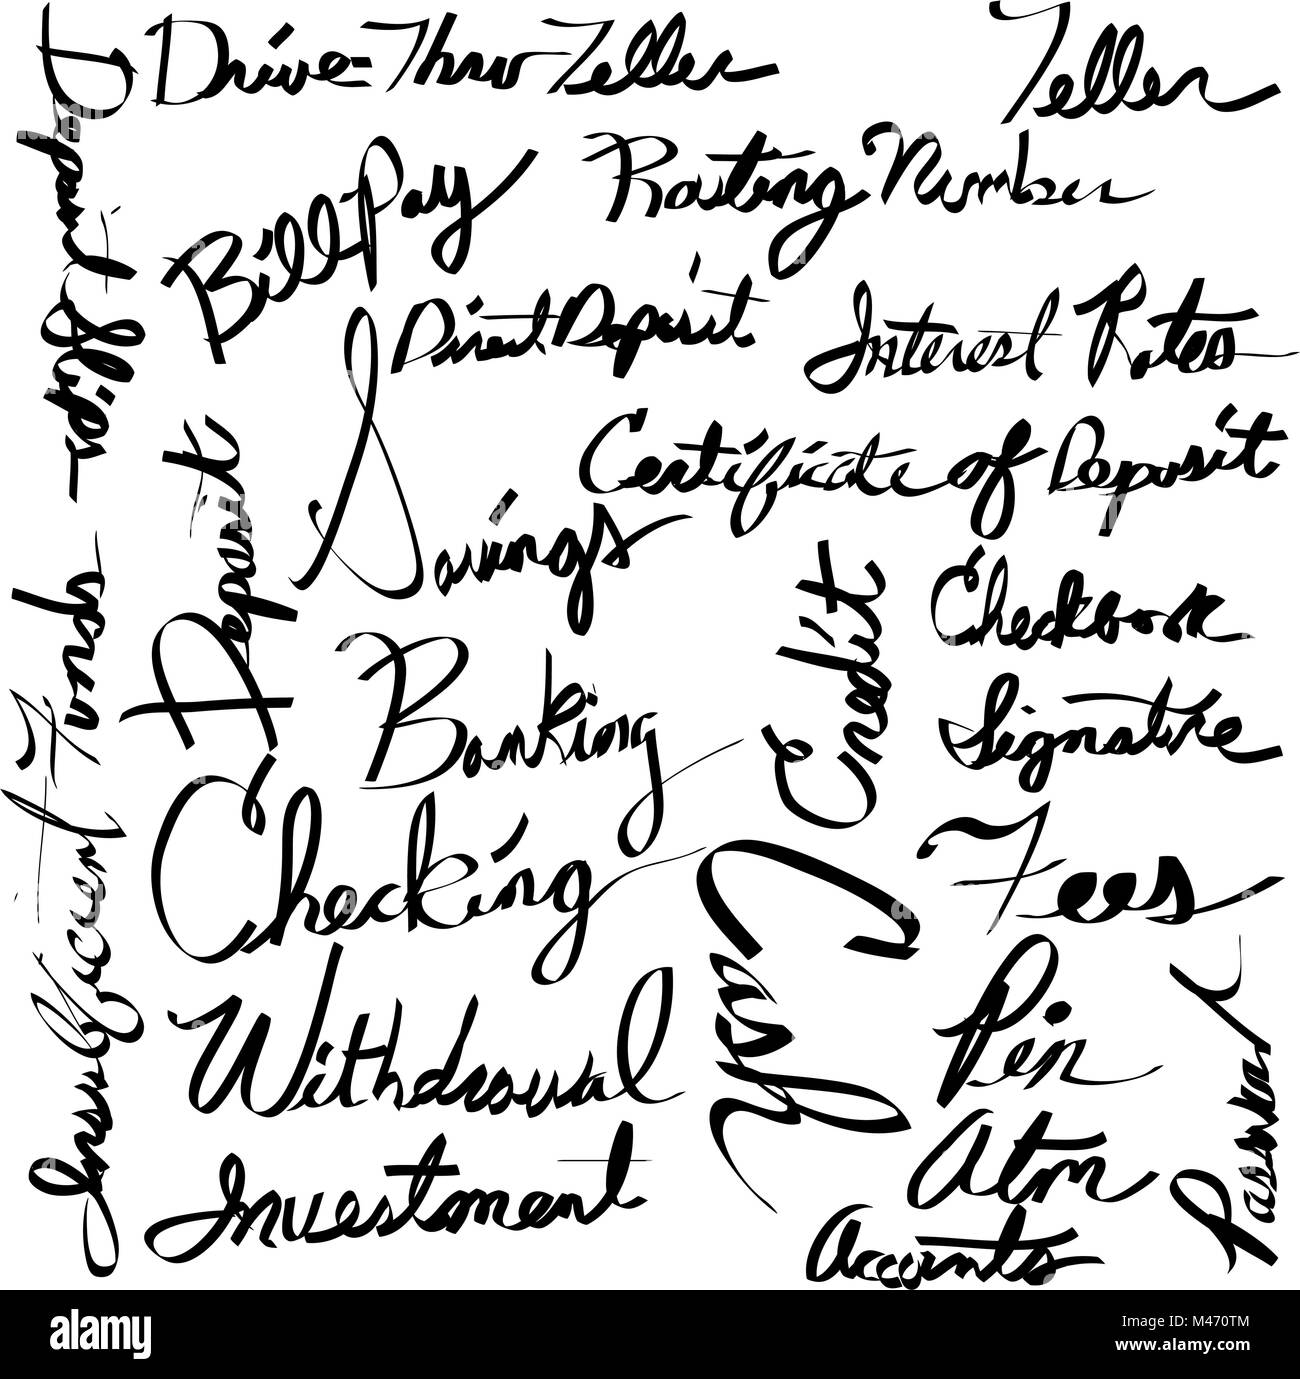 Drive-Thru Teller
Teller
Deposit Slips
Bill Pay
Routing Number
Direct Deposit
Interest Rates
Savings
Certificate of Deposit
Deposit
Checkbook
Credit
Insufficient Funds
Banking
Signature
Checking
Fees
Cash
Withdrawal
Pin
Password
Investment
Atm
Accounts
alamy
a
alamy
Image ID: M470TM
www.alamy.com